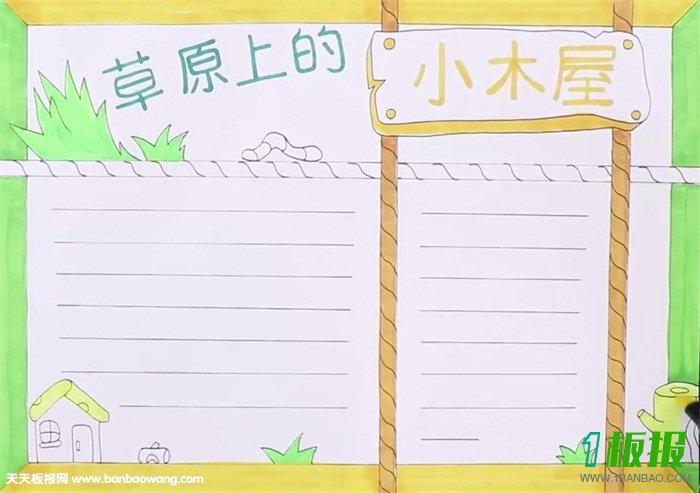 草原上的
小木屋
1板报
WWW.1BANBAO.COM
天天板报网 www.banbaowang.com